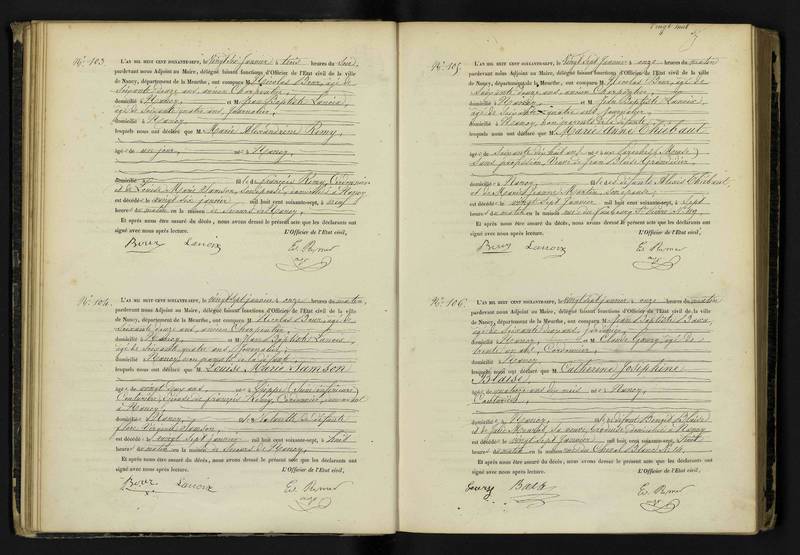 N.º 103.
L'AN MIL HUIT CENT SOIXANTE-SEPT, le vingt six janvier à trois heures du soir,
pardevant nous Adjoint au Maire, délégué faisant fonctions d'Officier de l'État civil de la ville
de Nancy, département de la Meurthe, ont comparu M. Nicolas Bour, âgé de
soixante onze ans, ancien Charpentier,
domicilié à Nancy, et M. Jean Baptiste Lanoix,
âgé de soixante quatre ans, journalier,
domicilié à Nancy,
lesquels nous ont déclaré que M. Marie Alexandrine Remy,
âgée de un jour, née à Nancy,
domiciliée fille de François Remy, Cordonnier
et de Louise Marie Samson, son épouse, domiciliés à Nancy
est décédée le vingt six janvier mil huit cent soixante-sept, à neuf
heures du matin en la maison de secours de Nancy.
Et après nous être assuré du décès, nous avons dressé le présent acte que les déclarants ont
signé avec nous après lecture.
L'Officier de l'État civil,
Bour Lanoix
N.º 104.
L'AN MIL HUIT CENT SOIXANTE-SEPT, le vingt sept janvier à onze heures du matin,
pardevant nous Adjoint au Maire, délégué faisant fonctions d'Officier de l'État civil de la ville
de Nancy, département de la Meurthe, ont comparu M. Nicolas Bour, âgé de
soixante onze ans, ancien Charpentier,
domicilié à Nancy, et M. Jean Baptiste Lanoix,
âgé de soixante quatre ans, journalier,
domicilié à Nancy, non parents de la défunte
lesquels nous ont déclaré que M. Louise Marie Samson
âgée de vingt deux ans, née à Dieppe (Seine inférieure)
Couturière, épouse de François Remy, Cordonnier, demeurant
à Nancy,
domiciliée à Nancy, fille de défunte
Samson,
est décédée le vingt sept janvier mil huit cent soixante-sept, à huit
heures du matin en la maison de secours de Nancy.
Et après nous être assuré du décès, nous avons dressé le présent acte que les déclarants ont
signé avec nous après lecture.
L'Officier de l'État civil,
Bour Lanoix
Vingt huit
N.º 105
L'AN MIL HUIT CENT SOIXANTE-SEPT, le vingt sept janvier à onze heures du matin
pardevant nous Adjoint au Maire, délégué faisant fonctions d'Officier de l'État civil de la ville
de Nancy, département de la Meurthe, ont comparu M. Nicolas Bour, âgé de
soixante onze ans, ancien Charpentier,
domicilié à Nancy, et M. Jean Baptiste Lanoix,
âgé de soixante quatre ans, journalier,
domicilié à Nancy, non parents de la défunte
lesquels nous ont déclaré que M. Marie Anne Thiébaut
âgée de soixante dix huit ans, née à
sans profession, Veuve de Jean Blaise
domiciliée à Nancy, fille des défunts Alexis Thiébaut
et de Marie Jeanne Martin, son épouse,
est décédée le vingt sept janvier mil huit cent soixante-sept, à sept
heures du matin en la maison rue du faubourg St Pierre N.º
Et après nous être assuré du décès, nous avons dressé le présent acte que les déclarants ont
signé avec nous après lecture.
L'Officier de l'État civil,
Bour Lanoix
N.º 106.
L'AN MIL HUIT CENT SOIXANTE-SEPT, le vingt sept janvier à onze heures du matin
pardevant nous Adjoint au Maire, délégué faisant fonctions d'Officier de l'État civil de la ville
de Nancy, département de la Meurthe, ont comparu M. Jean Baptiste
âgé de soixante ans,
domicilié à Nancy, et M. Claude Gœury, âgé de
trente un ans, Cordonnier,
domicilié à Nancy,
lesquels nous ont déclaré que M. Catherine Joséphine
Blaise
âgée de ans dix mois née à Nancy,
Couturière,
domiciliée à Nancy, fille de défunt Benoît Blaise
et de Julie sa veuve, domiciliée à Nancy
est décédée le vingt sept janvier mil huit cent soixante-sept, à huit
heures du matin en la maison rue du Cheval Blanc N.º 14.
Et après nous être assuré du décès, nous avons dressé le présent acte que les déclarants ont
signé avec nous après lecture.
L'Officier de l'État civil,